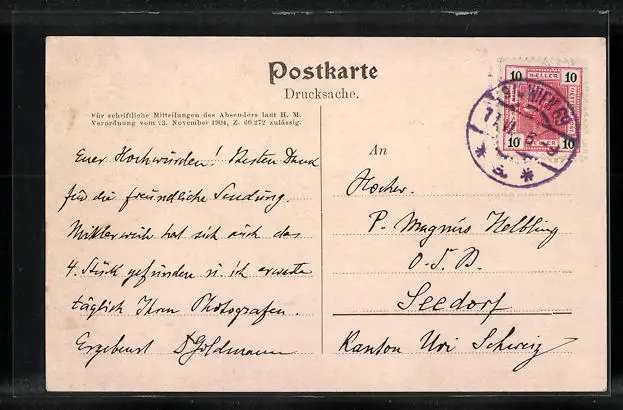 Postkarte
Drucksache.
Für schriftliche Mitteilungen des Absenders laut H. M.
Verordnung vom 23. November 1904, Z. 60.272 zulässig.
10 HELLER 10
10 HELLER 10
WIEN
Euer Hochwürden! Besten Dank
für die freundliche Sendung.
Mittlerweile hat sich auch das
4. Stück gefunden u. ich erwarte
täglich Ihren Photografen.
Ergebenst Dr Goldmann
An
Hochw.
P. Magnus Helbling
O.S.B.
Seedorf
Kanton Uri Schweiz